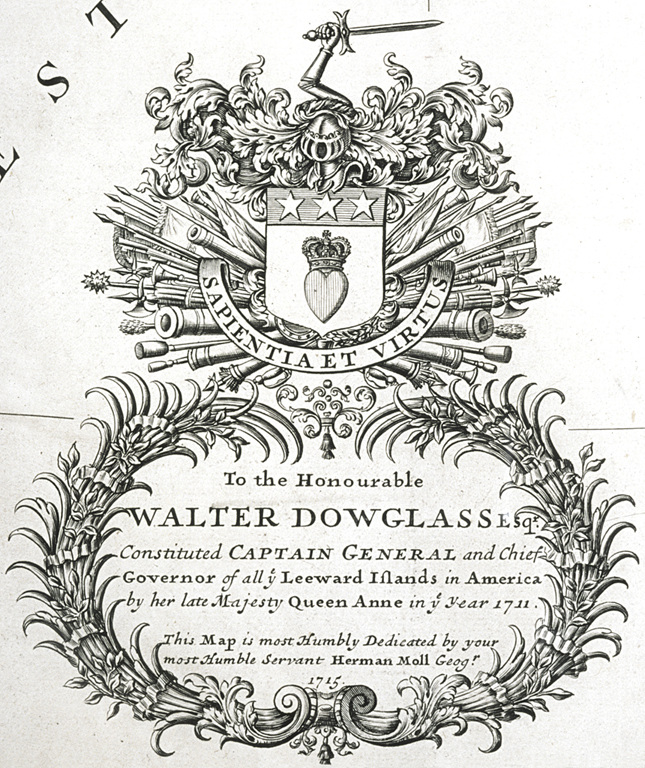 EST
SAPIENTIA ET VIRTUS
To the Honourable
WALTER DOWGLASS Esqr.
Constituted CAPTAIN GENERAL and Chief
Governor of all ye Leeward Iſlands in America
by her late Majesty Queen Anne in ye Year 1711.
This Map is most Humbly Dedicated by your
most Humble Servant Herman Moll Geogr.
1715.